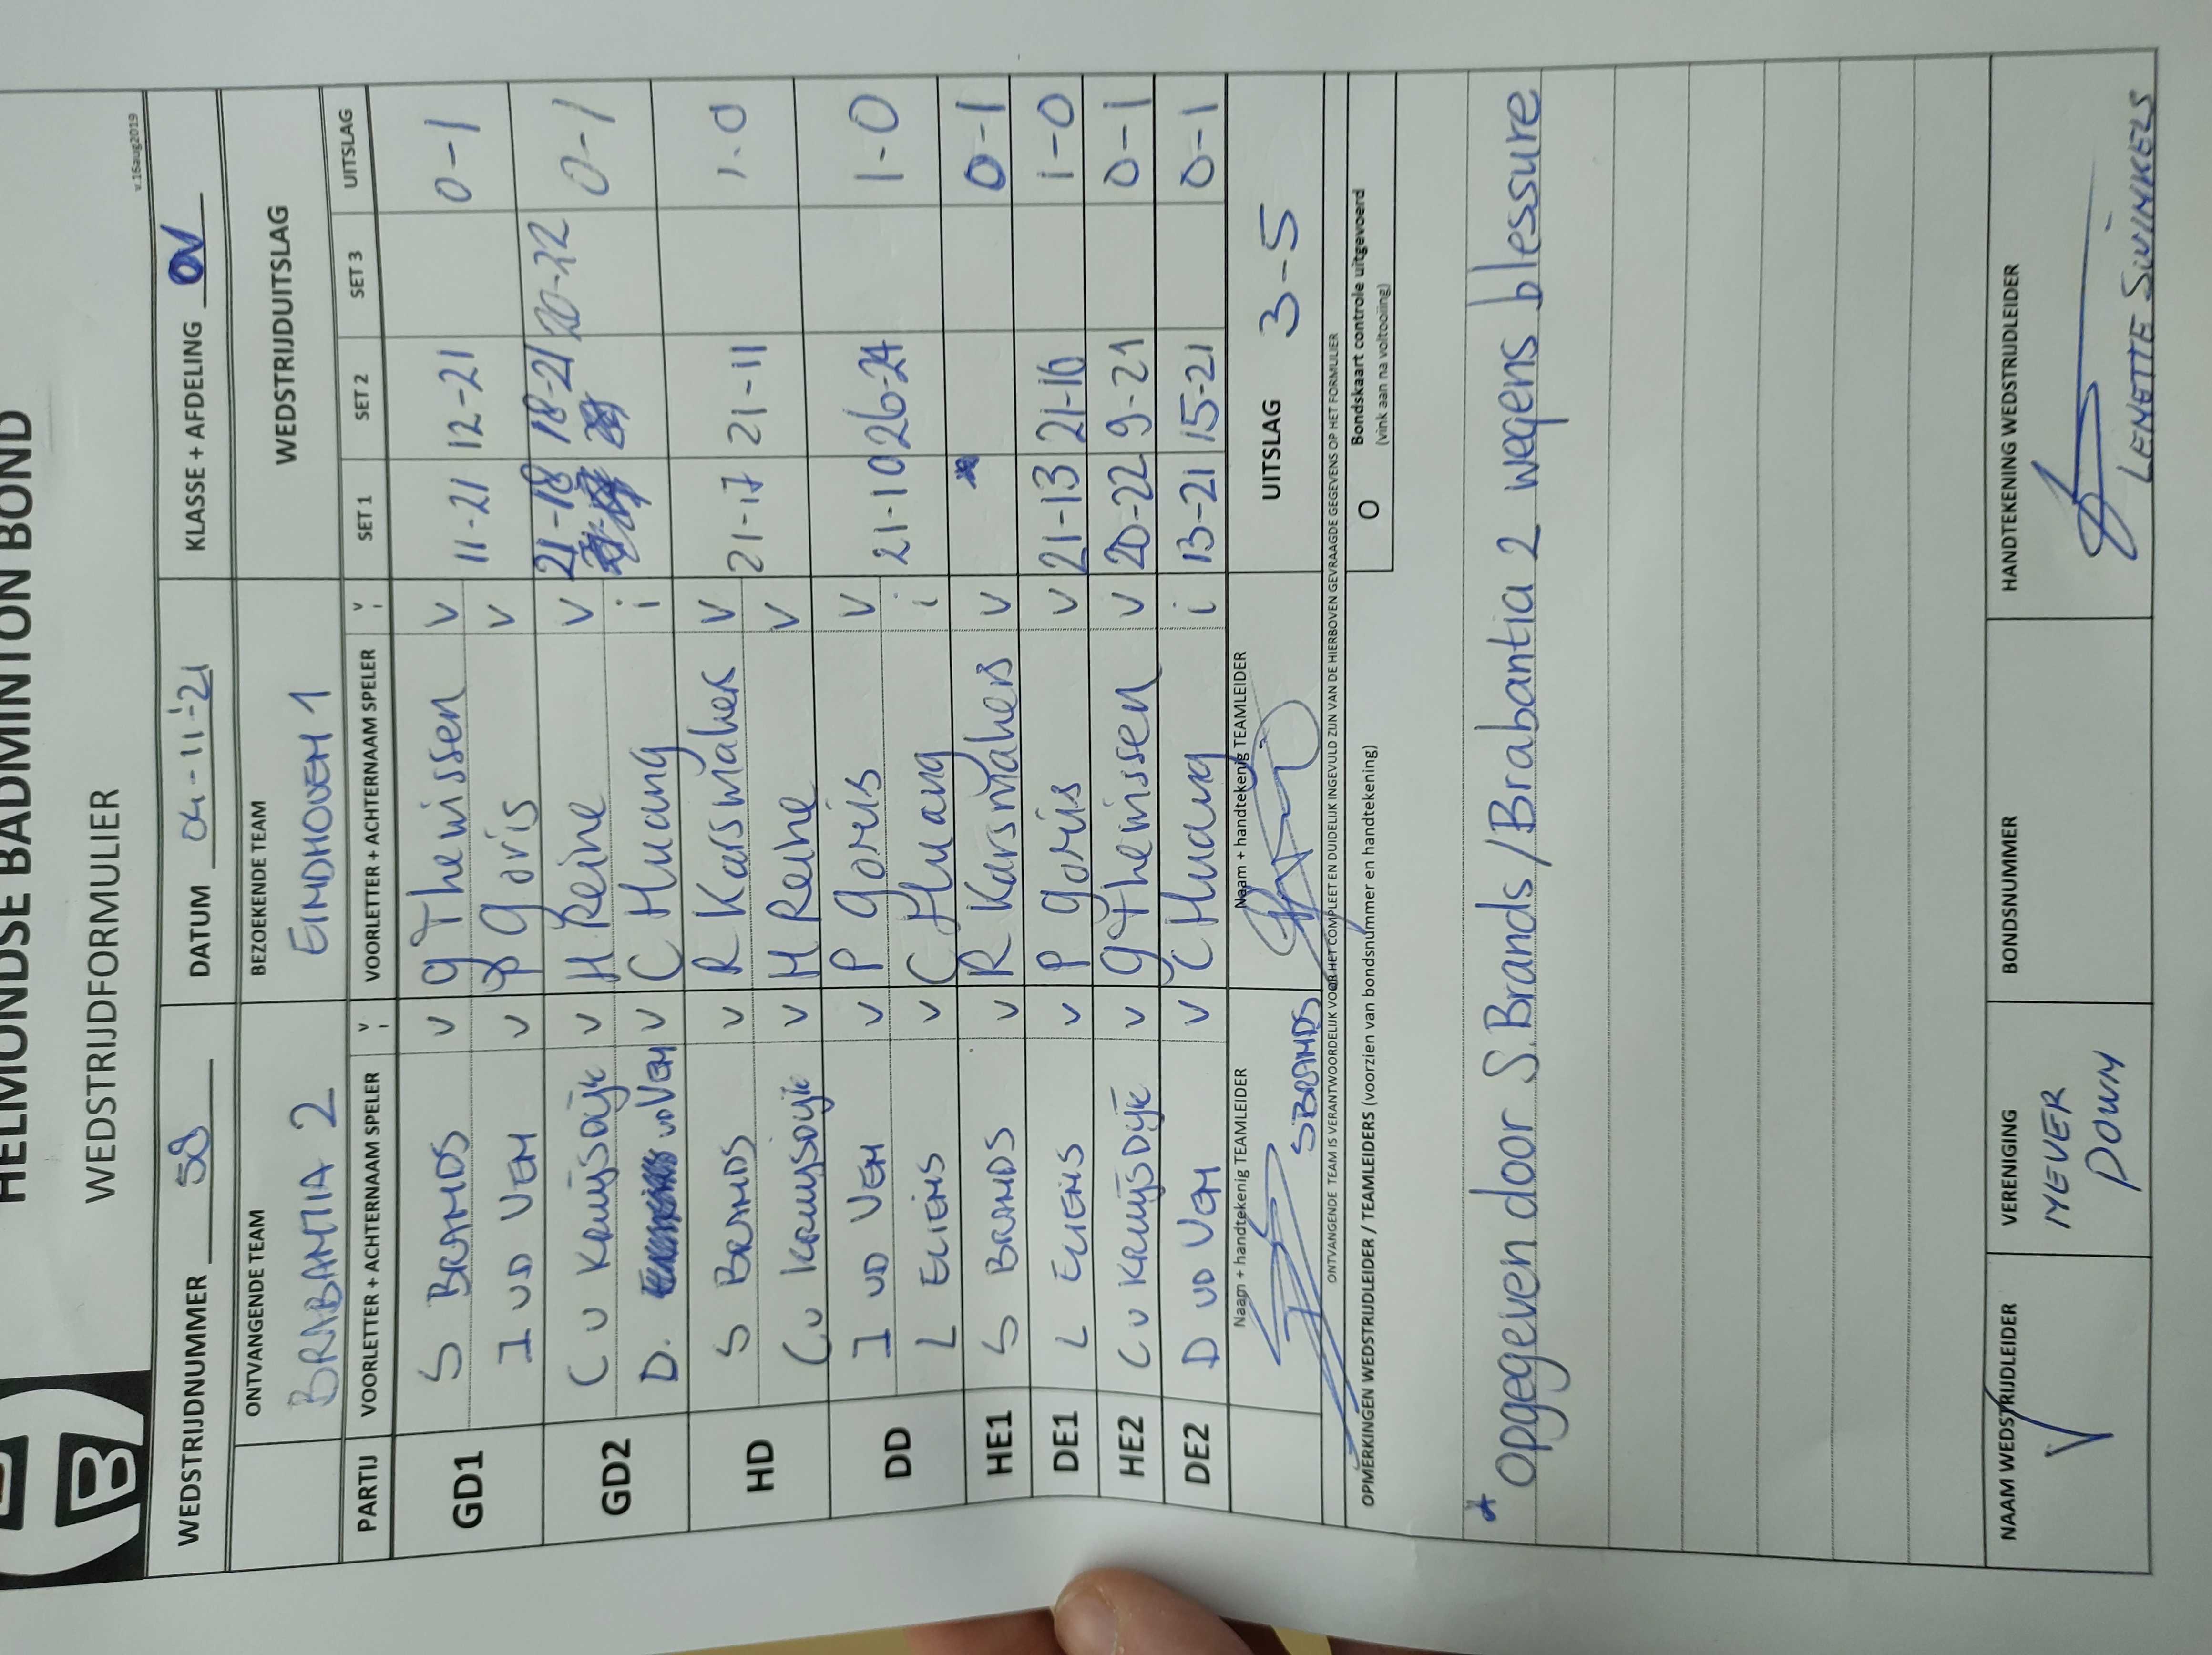 HELMONDSE BADMINTON BOND
WEDSTRIJDFORMULIER
v.16aug2019
B
WEDSTRIJDNUMMER 58 DATUM 04-11-'21 KLASSE + AFDELING OV
ONTVANGENDE TEAM BEZOEKENDE TEAM WEDSTRIJDUITSLAG
BRABANTIA 2 EINDHOVEN 1
PARTIJ VOORLETTER + ACHTERNAAM SPELER v i VOORLETTER + ACHTERNAAM SPELER v i SET 1 SET 2 SET 3 UITSLAG
GD1 S BRANDS v G Thewissen v 11-21 12-21 0-1
I VD VEN v P Goris v
GD2 C v KRUIJSDIJK v H Reine v 21-18 18-21 20-22 0-1
D. vd Ven v C Huang i
HD S BRANDS v R Karsmakers v 21-17 21-11 1-0
C v KRUIJSDIJK v H Reine v
DD I VD VEN v P Goris v 21-10 26-24 1-0
L ELIENS v C Huang i
HE1 S BRANDS v R Karsmakers v * 0-1
DE1 L ELIENS v P Goris v 21-13 21-16 1-0
HE2 C v KRUIJSDIJK v G Thewissen v 20-22 9-21 0-1
DE2 D VD VEN v C Huang i 13-21 15-21 0-1
Naam + handtekenig TEAMLEIDER Naam + handtekenig TEAMLEIDER UITSLAG 3-5
S BRANDS
ONTVANGENDE TEAM IS VERANTWOORDELIJK VOOR HET COMPLEET EN DUIDELIJK INGEVULD ZIJN VAN DE HIERBOVEN GEVRAAGDE GEGEVENS OP HET FORMULIER
OPMERKINGEN WEDSTRIJDLEIDER / TEAMLEIDERS (voorzien van bondsnummer en handtekening) O Bondskaart controle uitgevoerd
(vink aan na voltooiing)
* Opgegeven door S. Brands / Brabantia 2 wegens blessure
NAAM WEDSTRIJDLEIDER VERENIGING BONDSNUMMER HANDTEKENING WEDSTRIJDLEIDER
NEVER
DOWN
LENETTE SWINKELS